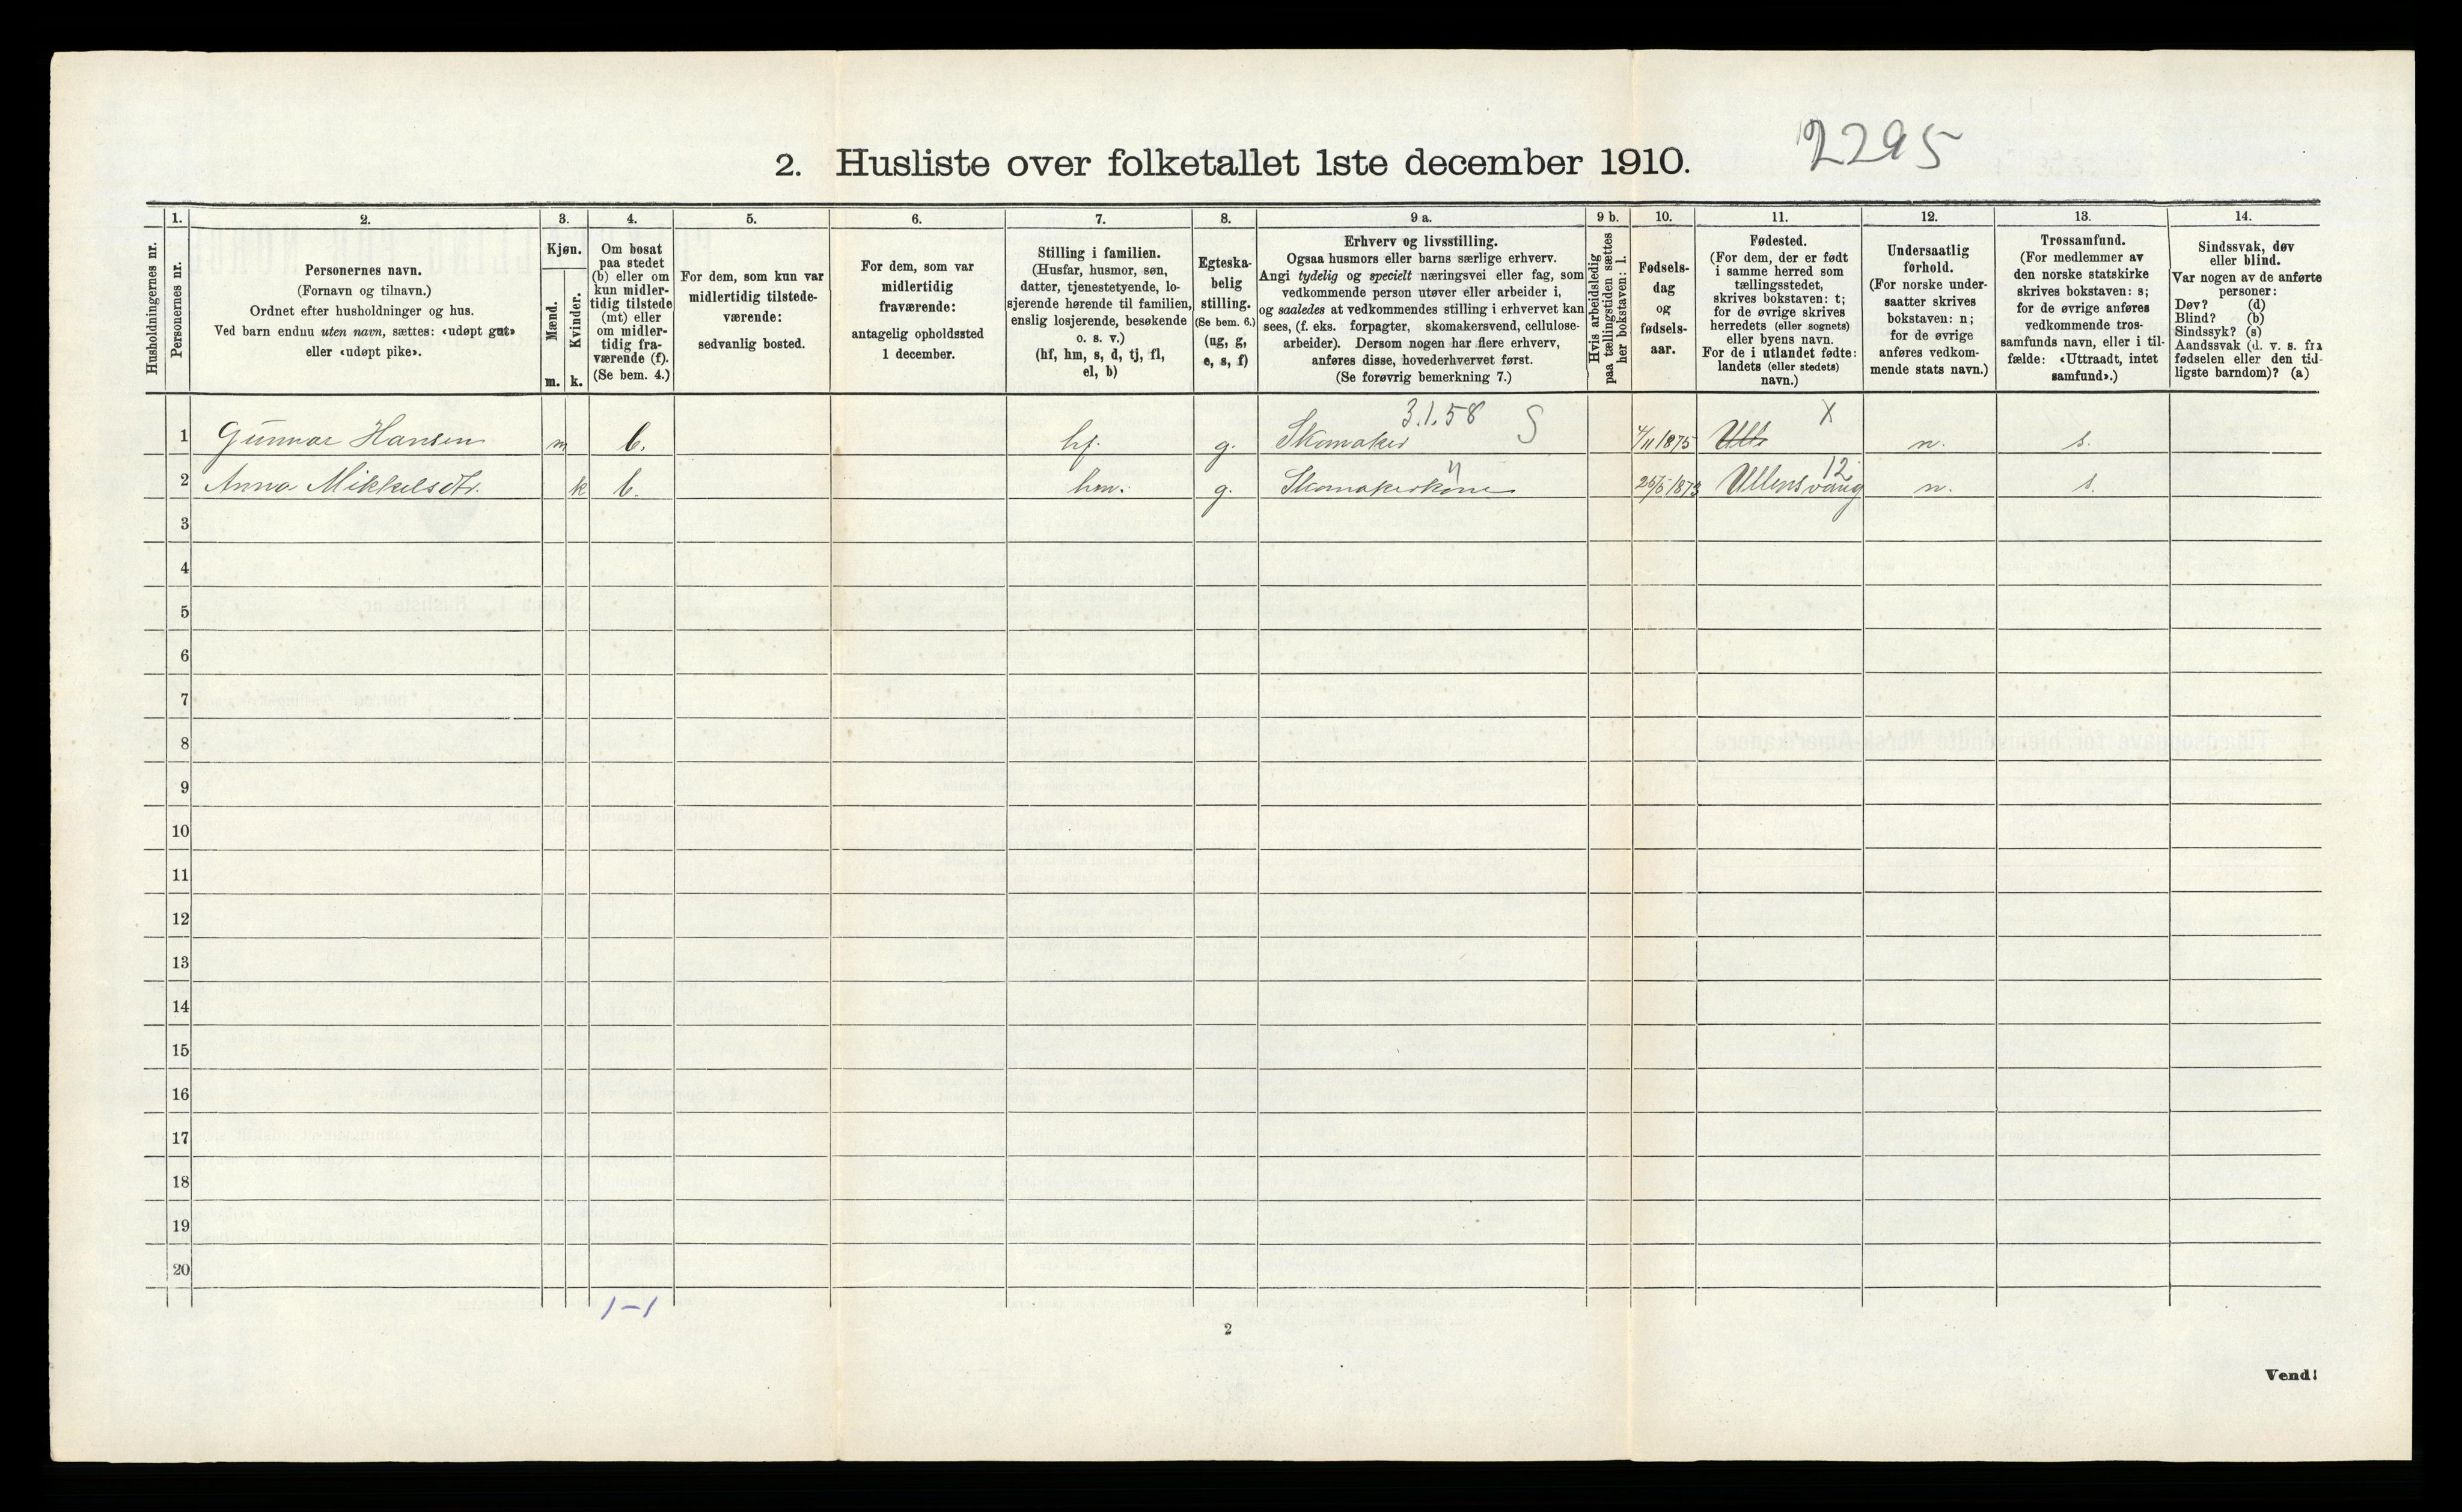 2295
2. Husliste over folketallet 1ste december 1910.
Husholdningernes nr.
1.
Personernes nr.
2.
Personernes navn.
(Fornavn og tilnavn.)
Ordnet efter husholdninger og hus.
Ved barn endnu uten navn, sættes: «udøpt gut»
eller «udøpt pike».
3.
Kjøn.
Mænd.
Kvinder.
m. k.
4.
Om bosat
paa stedet
(b) eller om
kun midler-
tidig tilstede
(mt) eller
om midler-
tidig fra-
værende (f).
(Se bem. 4.)
5.
For dem, som kun var
midlertidig tilstede-
værende:
sedvanlig bosted.
6.
For dem, som var
midlertidig
fraværende:
antagelig opholdssted
1 december.
7.
Stilling i familien.
(Husfar, husmor, søn,
datter, tjenestetyende, lo-
sjerende hørende til familien,
enslig losjerende, besøkende
o. s. v.)
(hf, hm, s, d, tj, fl,
el, b)
8.
Egteska-
belig
stilling.
(Se bem. 6.)
(ug, g,
e, s, f)
9 a.
Erhverv og livsstilling.
Ogsaa husmors eller barns særlige erhverv.
Angi tydelig og specielt næringsvei eller fag, som
vedkommende person utøver eller arbeider i,
og saaledes at vedkommendes stilling i erhvervet kan
sees, (f. eks. forpagter, skomakersvend, cellulose-
arbeider). Dersom nogen har flere erhverv,
anføres disse, hovederhvervet først.
(Se forøvrig bemerkning 7.)
9 b.
Hvis arbeidsledig
paa tællingstiden sættes
her bokstaven: l.
10.
Fødsels-
dag
og
fødsels-
aar.
11.
Fødested.
(For dem, der er født
i samme herred som
tællingsstedet,
skrives bokstaven: t;
for de øvrige skrives
herredets (eller sognets)
eller byens navn.
For de i utlandet fødte:
landets (eller stedets)
navn.)
12.
Undersaatlig
forhold.
(For norske under-
saatter skrives
bokstaven: n;
for de øvrige
anføres vedkom-
mende stats navn.)
13.
Trossamfund.
(For medlemmer av
den norske statskirke
skrives bokstaven: s;
for de øvrige anføres
vedkommende tros-
samfunds navn, eller i til-
fælde: «Uttraadt, intet
samfund».)
14.
Sindssvak, døv
eller blind.
Var nogen av de anførte
personer:
Døv? (d)
Blind? (b)
Sindssyk? (s)
Aandssvak (d. v. s. fra
fødselen eller den tid-
ligste barndom)? (a)
3.1.58 S X
1 Gunnar Hansen m b. hf. g. Skomaker 4/11 1875 n. s.
12
2 Anna Mikkelsdtr. k b. hm. g. Skomakerkone 25/5 1873 Ullensvang n. s.
3
4
5
6
7
8
9
10
11
12
13
14
15
16
17
18
19
20
1-1
2
Vend!